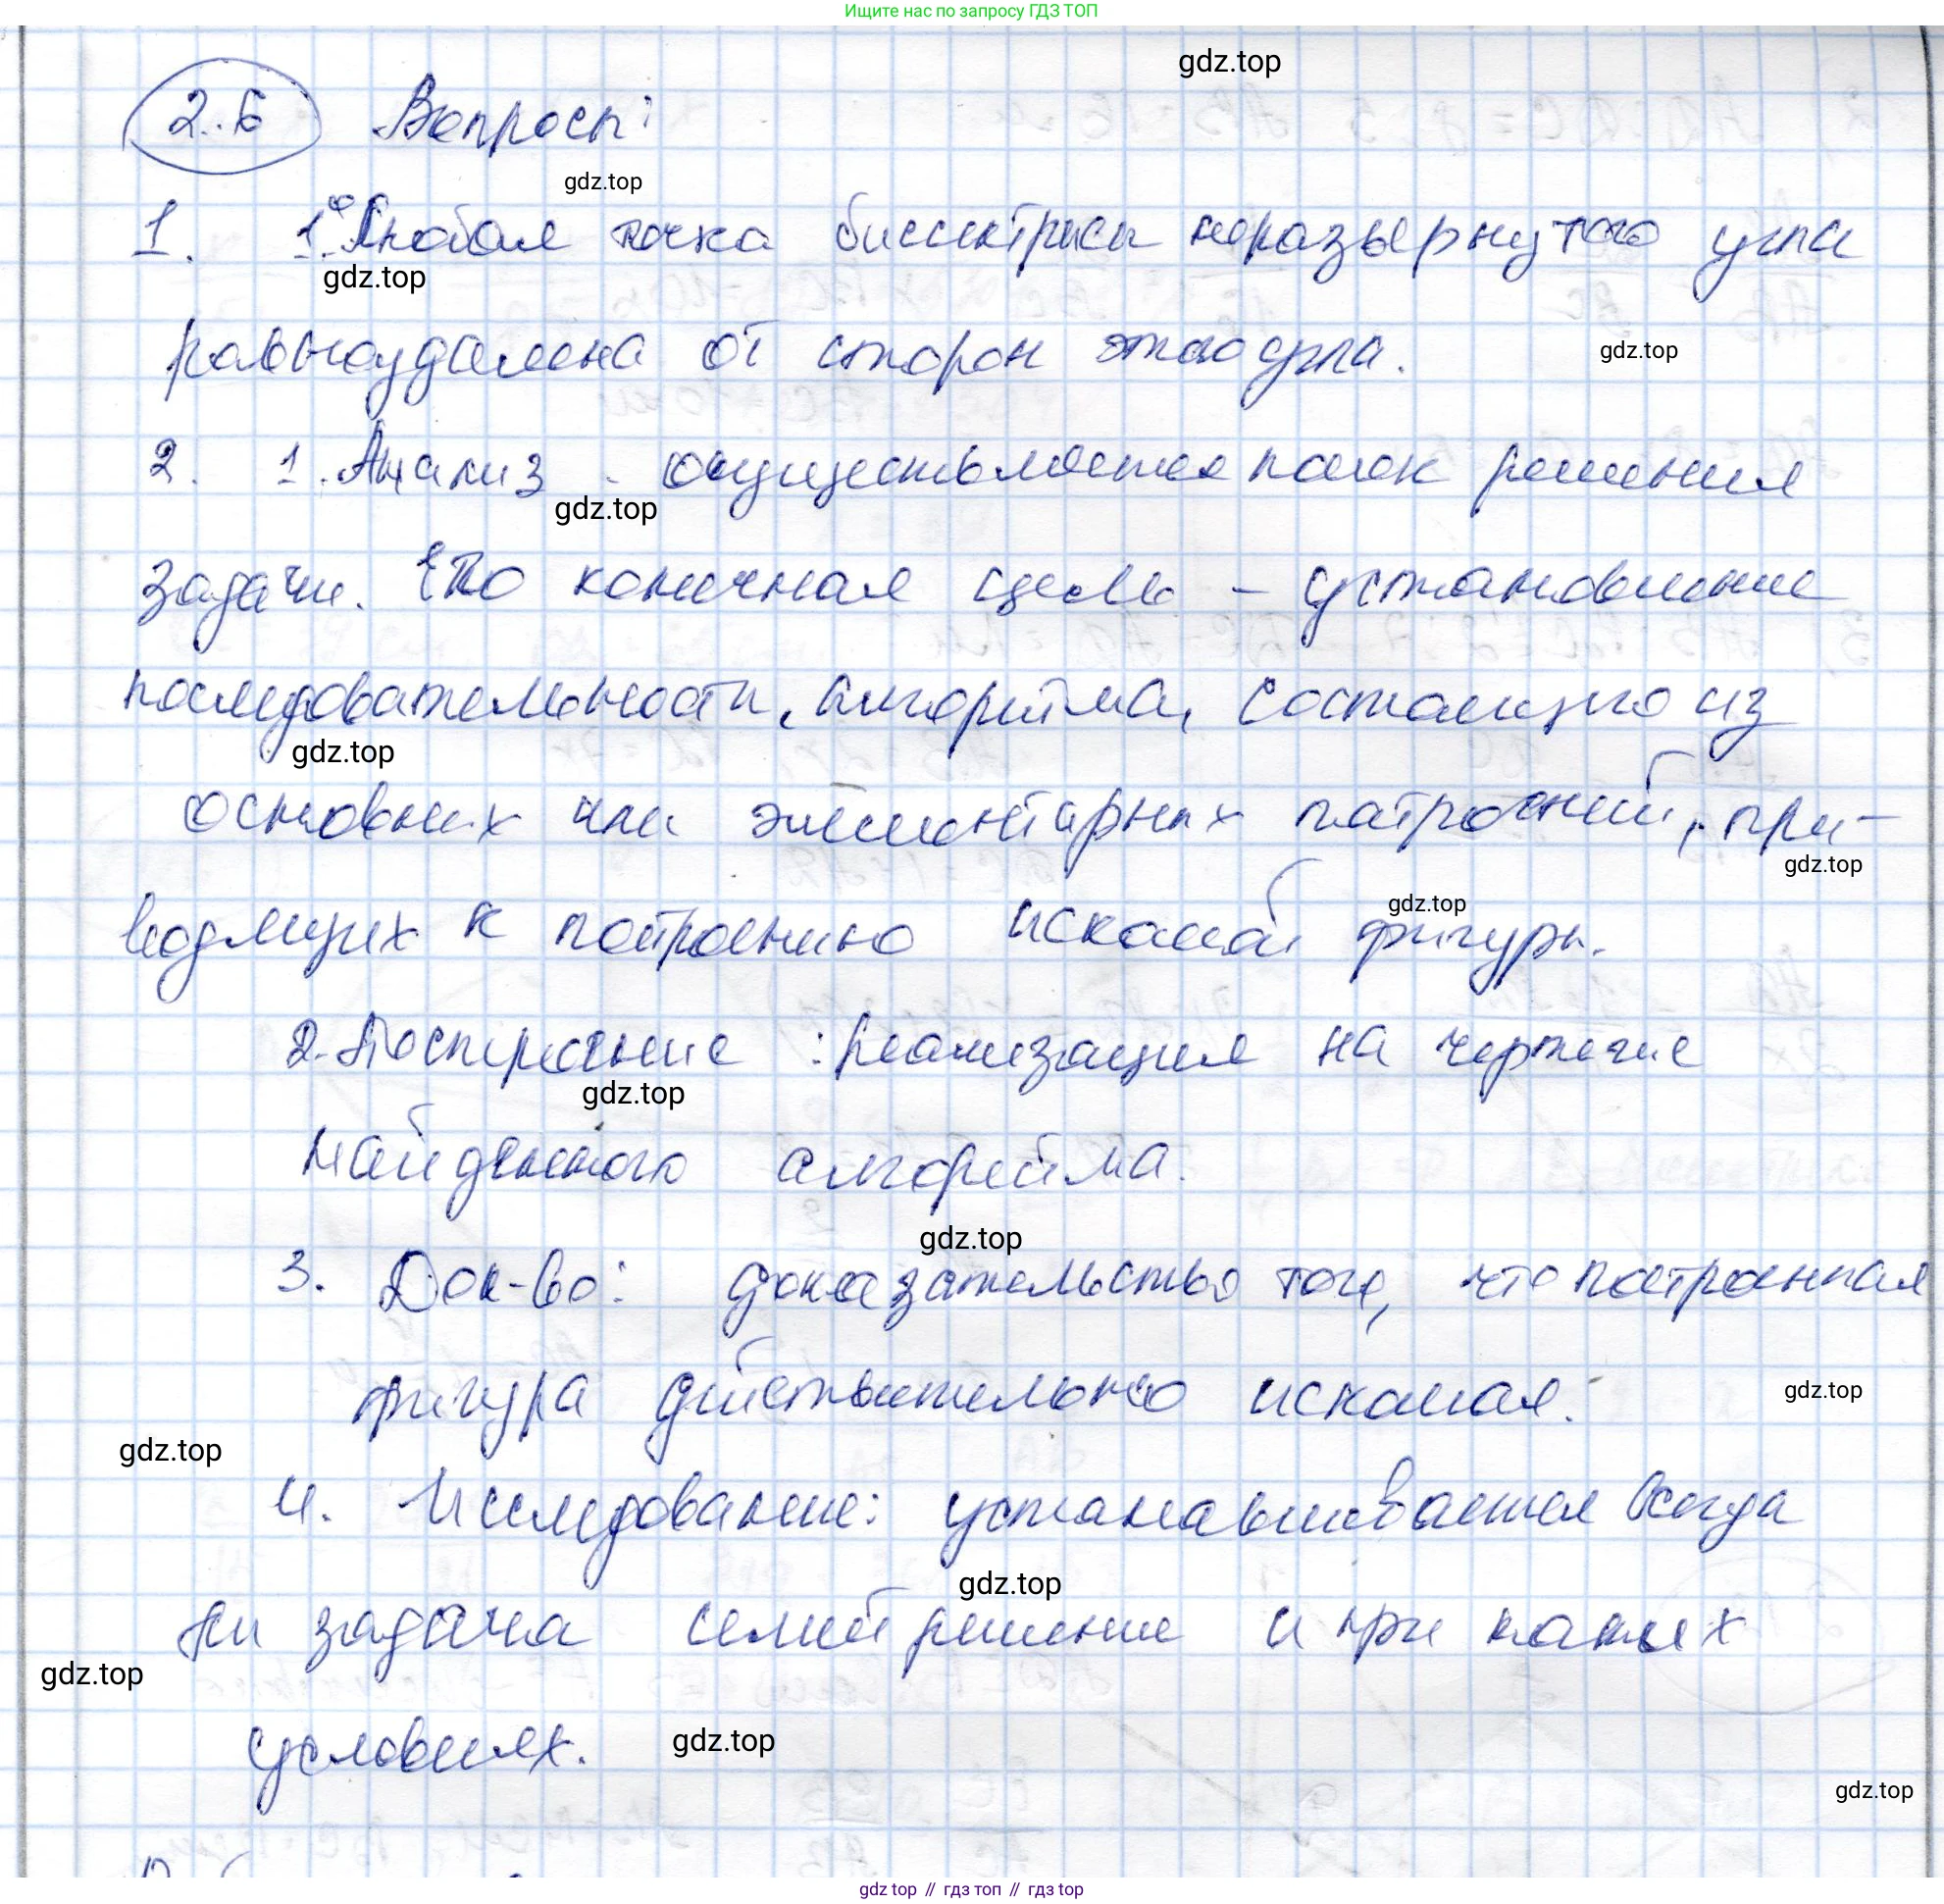 Ищите нас по запросу ГДЗ ТОП
gdz.top
2.6 Вопросы:
gdz.top
1. 1° Любая точка биссектрисы неразвернутого угла
gdz.top
равноудалена от сторон этого угла.
gdz.top
2. 1. Анализ. осуществляется поиск решения
gdz.top
задачи. Его конечная цель – установление
последовательности, алгоритма, состоящего из
gdz.top
основных или элементарных построений, при-
gdz.top
водящих к построению искомой фигуры.
gdz.top
2. Построение: реализация на чертеже
gdz.top
найденного алгоритма.
gdz.top
3. Док-во: доказательство того, что построенная
фигура действительно искомая.
gdz.top
gdz.top
4. Исследование: устанавливается всегда
gdz.top
ли задача имеет решение и при каких
gdz.top
условиях.
gdz.top
gdz.top
gdz top // гдз топ // гдз top